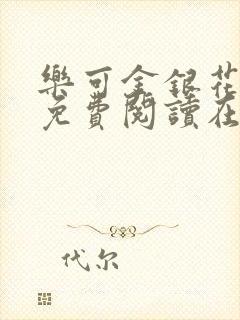 樂可金銀花
免費閱讀在
代尔